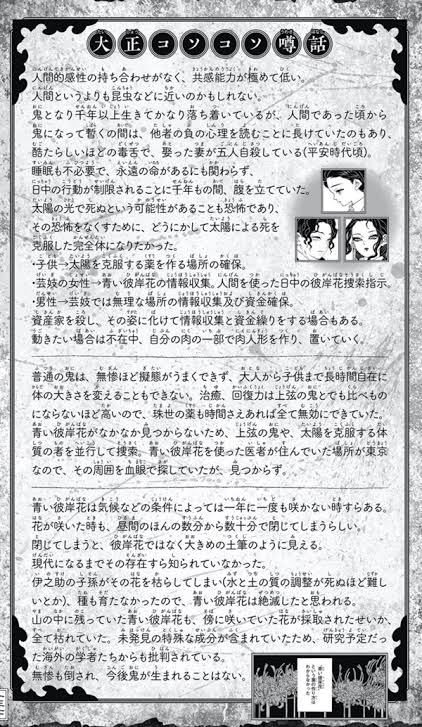 大正コソコソ噂話
人間的感性の持ち合わせがなく、共感能力が極めて低い。
人間というよりも昆虫などに近いのかもしれない。
鬼となり千年以上生きてかなり落ち着いているが、人間であった頃から
鬼になって暫くの間は、他者の負の心理を読むことに長けていたのもあり、
酷たらしいほどの毒舌で、娶った妻が五人自殺している(平安時代頃)。
睡眠も不必要で、永遠の命があるにも関わらず、
日中の行動が制限されることに千年もの間、腹を立てていた。
太陽の光で死ぬという可能性があることも恐怖であり、
その恐怖をなくすために、どうにかして太陽による死を
克服した完全体になりたかった。
・子供→太陽を克服する薬を作る場所の確保。
・芸妓の女性→青い彼岸花の情報収集。人間を使った日中の彼岸花捜索指示。
・男性→芸妓では無理な場所の情報収集及び資金確保。
資産家を殺し、その姿に化けて情報収集と資金繰りをする場合もある。
動きたい場合は不在中、自分の肉の一部で肉人形を作り、置いていく。
普通の鬼は、無惨ほど擬態がうまくできず、大人から子供まで長時間自在に
体の大きさを変えることもできない。治癒、回復力は上弦の鬼とでも比べもの
にならないほど高いので、珠世の薬も時間さえあれば全て無効にできていた。
青い彼岸花がなかなか見つからないため、上弦の鬼や、太陽を克服する体
質の者を並行して捜索。青い彼岸花を使った医者が住んでいた場所が東京
なので、その周囲を血眼で探していたが、見つからず。
青い彼岸花は気候などの条件によっては一年に一度も咲かない時すらある。
花が咲いた時も、昼間のほんの数分から数十分で閉じてしまうらしい。
閉じてしまうと、彼岸花ではなく大きめの土筆のように見える。
現代になるまでその存在すら知られていなかった。
伊之助の子孫がその花を枯らしてしまい(水と土の質の調整が死ぬほど難し
いとか)、種も育たなかったので、青い彼岸花は絶滅したと思われる。
山の中に残っていた青い彼岸花も、傍に咲いていた花が採取されたせいか、
全て枯れていた。未発見の特殊な成分が含まれていたため、研究予定だっ
た海外の学者たちからも批判されている。
無惨も倒され、今後鬼が生まれることはない。